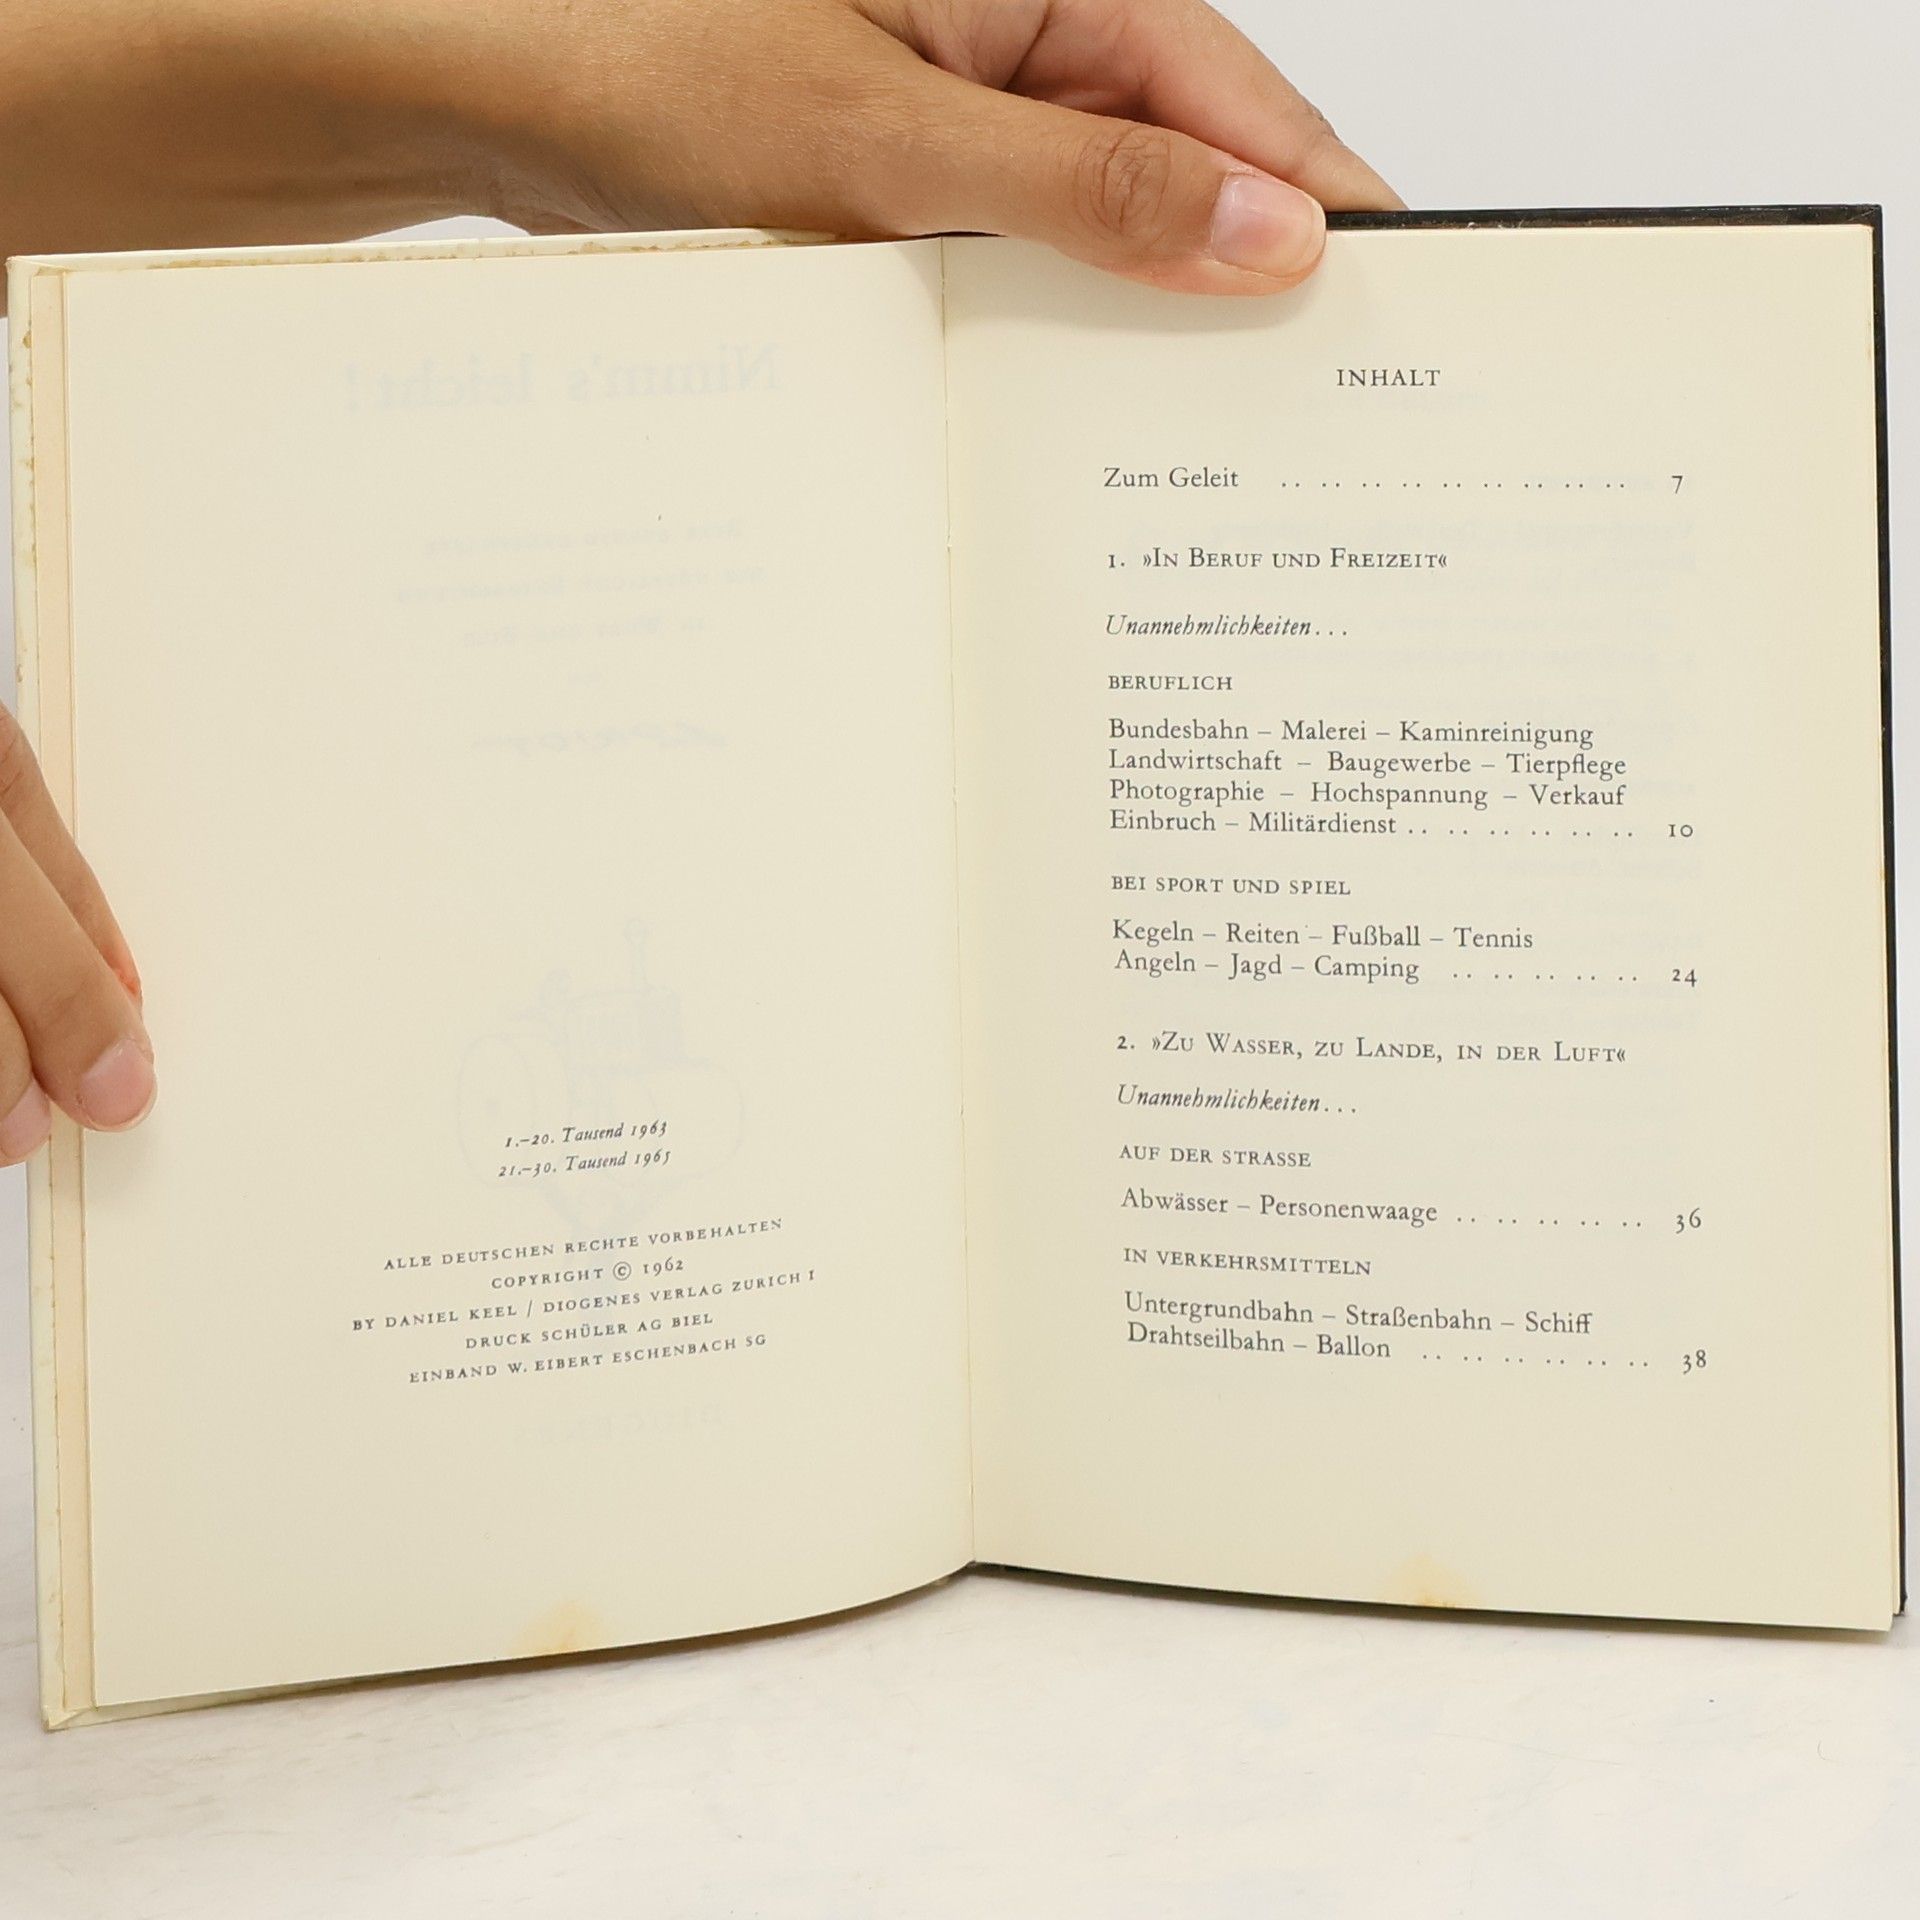 Nimm's leicht!
1.–20. Tausend 1963
21.–30. Tausend 1965
ALLE DEUTSCHEN RECHTE VORBEHALTEN
COPYRIGHT © 1962
BY DANIEL KEEL / DIOGENES VERLAG ZURICH 1
DRUCK SCHÜLER AG BIEL
EINBAND W. EIBERT ESCHENBACH SG
INHALT
Zum Geleit .. .. .. .. .. .. .. .. .. 7
1. »IN BERUF UND FREIZEIT«
Unannehmlichkeiten...
BERUFLICH
Bundesbahn – Malerei – Kaminreinigung
Landwirtschaft – Baugewerbe – Tierpflege
Photographie – Hochspannung – Verkauf
Einbruch – Militärdienst .. .. .. .. .. .. 10
BEI SPORT UND SPIEL
Kegeln – Reiten – Fußball – Tennis
Angeln – Jagd – Camping .. .. .. .. .. 24
2. »ZU WASSER, ZU LANDE, IN DER LUFT«
Unannehmlichkeiten...
AUF DER STRASSE
Abwässer – Personenwaage .. .. .. .. .. 36
IN VERKEHRSMITTELN
Untergrundbahn – Straßenbahn – Schiff
Drahtseilbahn – Ballon .. .. .. .. .. .. 38